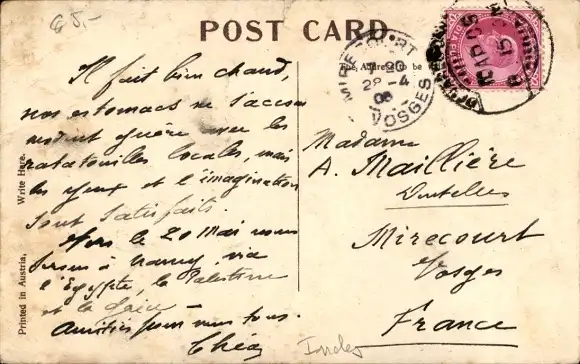 6 5,-
POST CARD
The Address to be
MIRECOURT
28-4
VOSGES
15 AP
Il fait bien chaud,
nos estomacs ne s'accom
modent guère avec les
ratatouilles locales, mais
les yeux et l'imagination
sont satisfaits.
Vers le 20 Mai nous
serons à Nancy, via
l'Égypte, la Palestine
et la Grèce
Amitiés pour vous tous.
Madame
A. Maillière
Dentelles
Mirecourt
Vosges
France
Indes
Printed in Austria, Write Here.